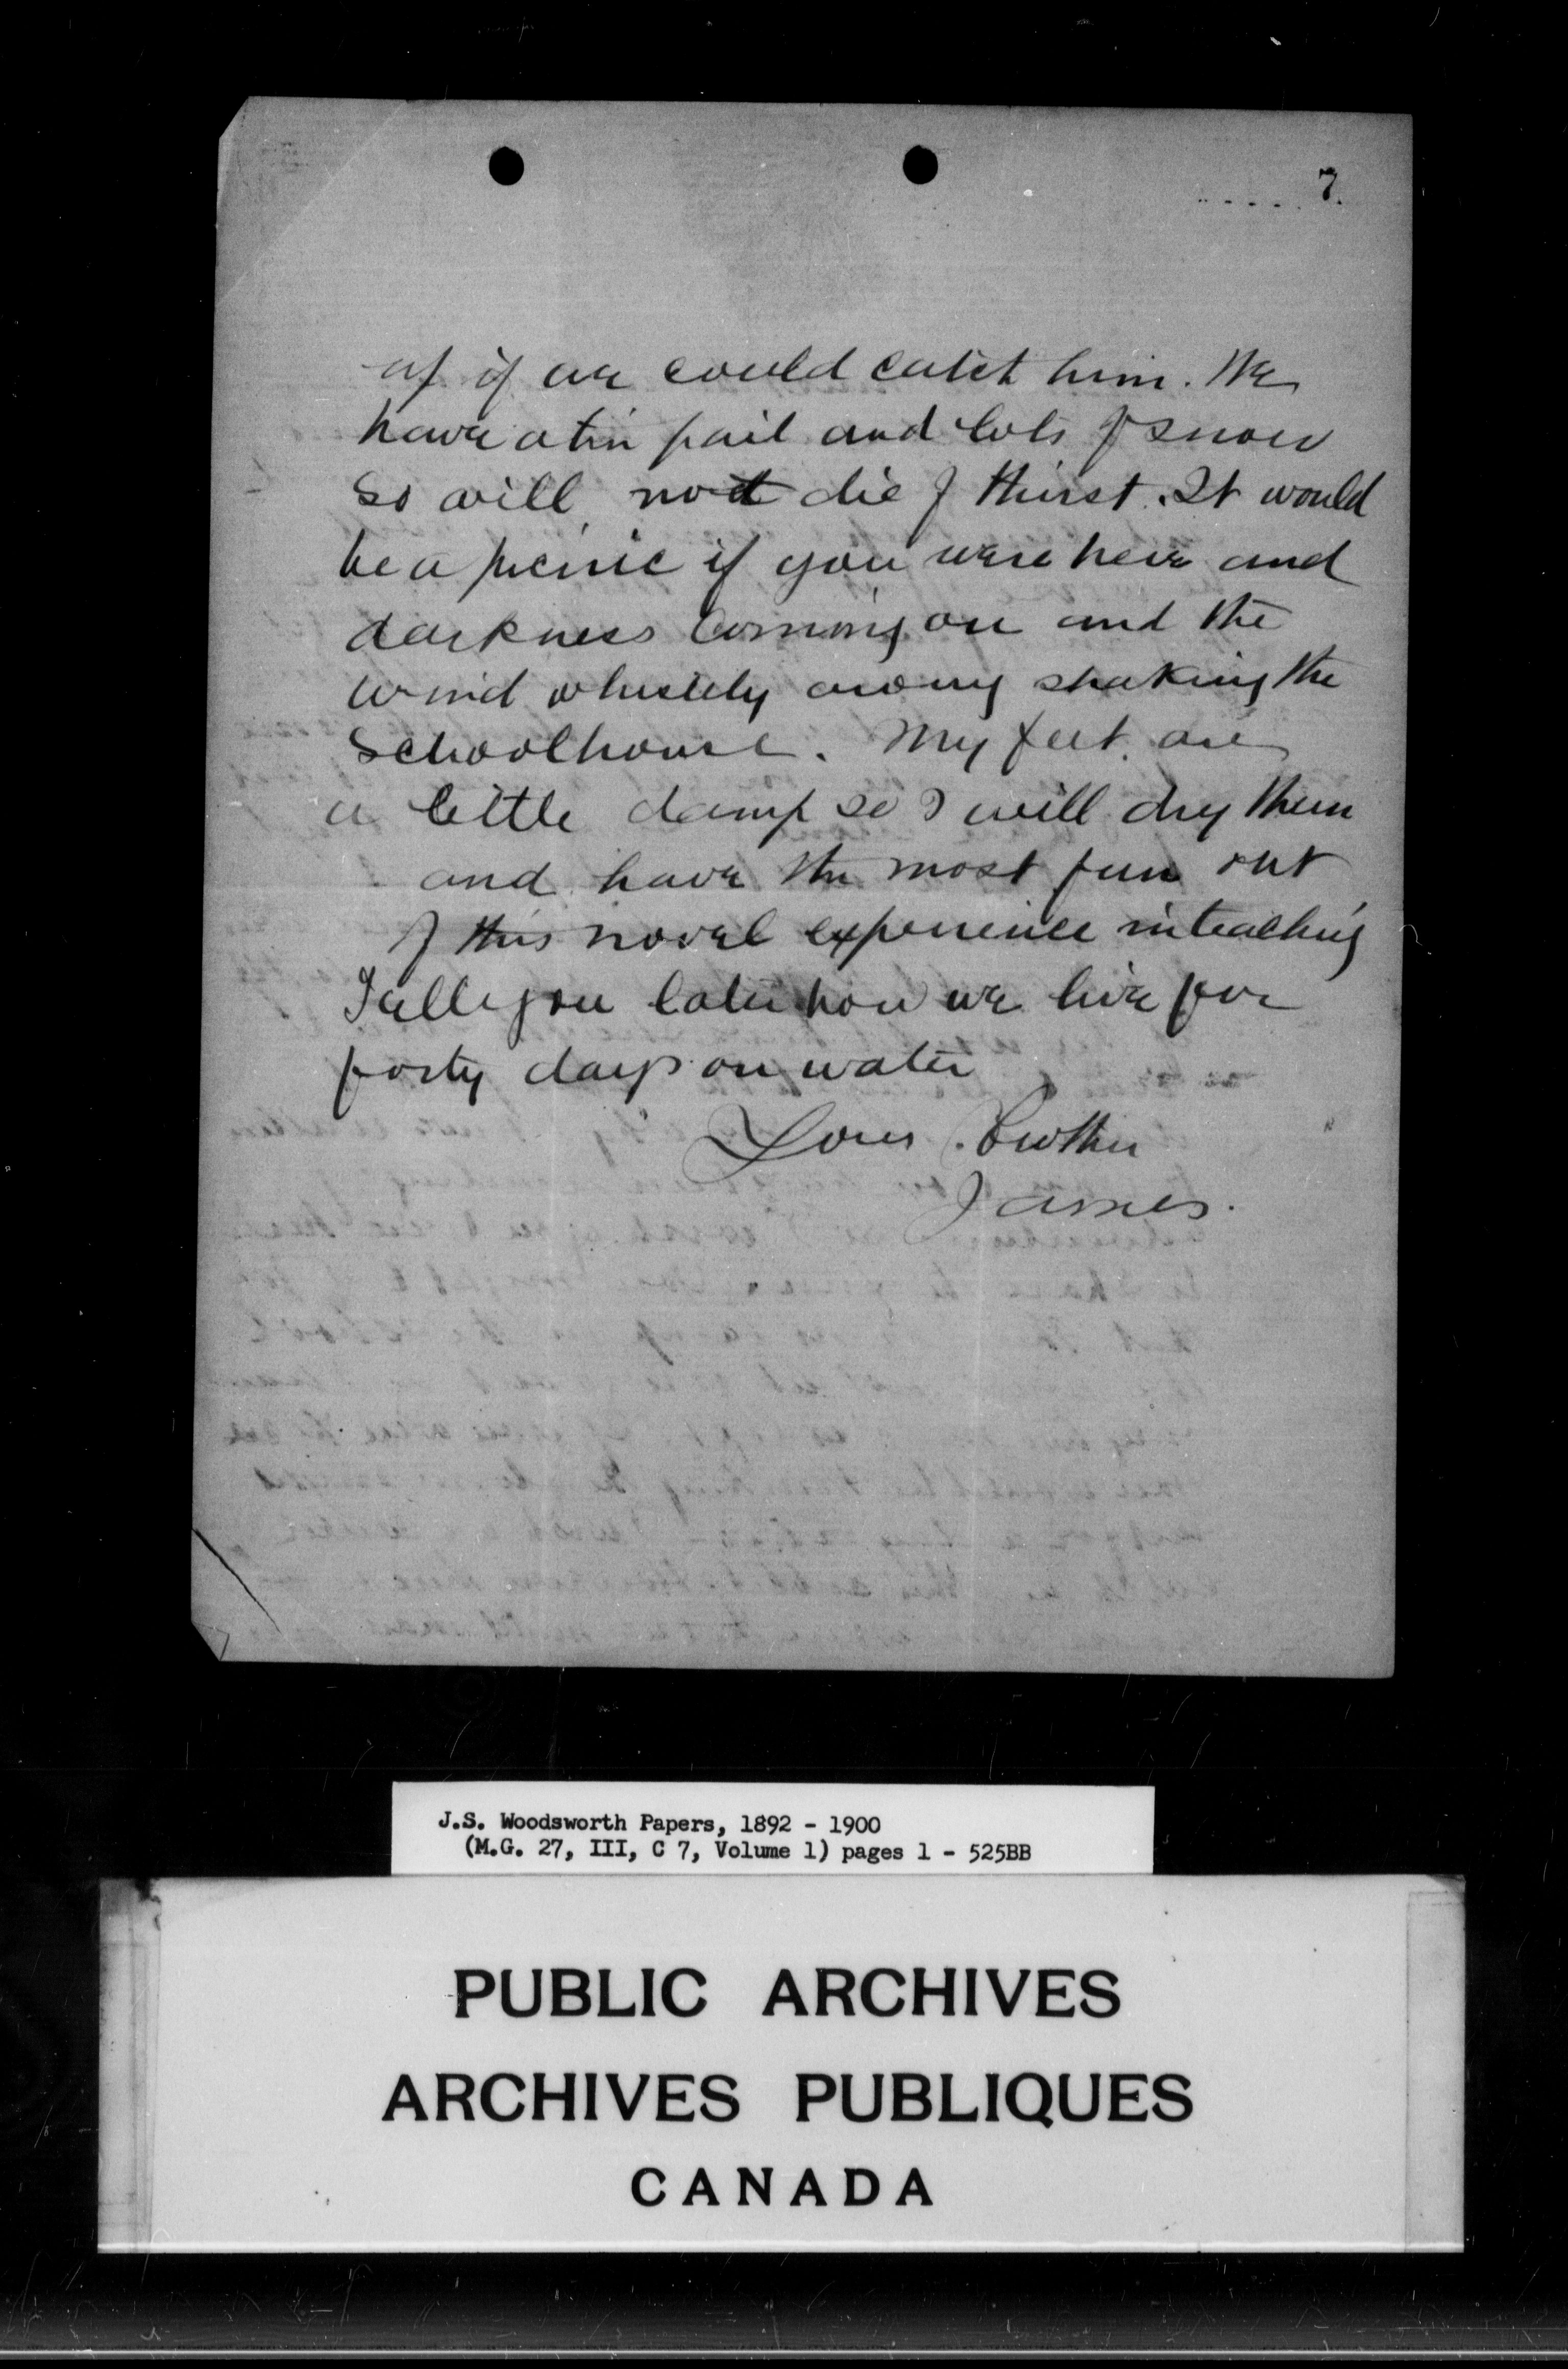 7.
up if we could catch him. We
have a tin pail and lots of snow
so will not die of thirst. It would
be a picnic if you were here and
darkness coming on and the
wind away shaking the
Schoolhouse. My feet are
a little damp so I will dry them
and have the most fun out
of this novel experience in teaching
you later how we live for
forty days on water
Your Brother
James.
J.S. Woodsworth Papers, 1892 - 1900
(M.G. 27, III, C 7, Volume 1) pages 1 - 525BB
PUBLIC ARCHIVES
ARCHIVES PUBLIQUES
CANADA